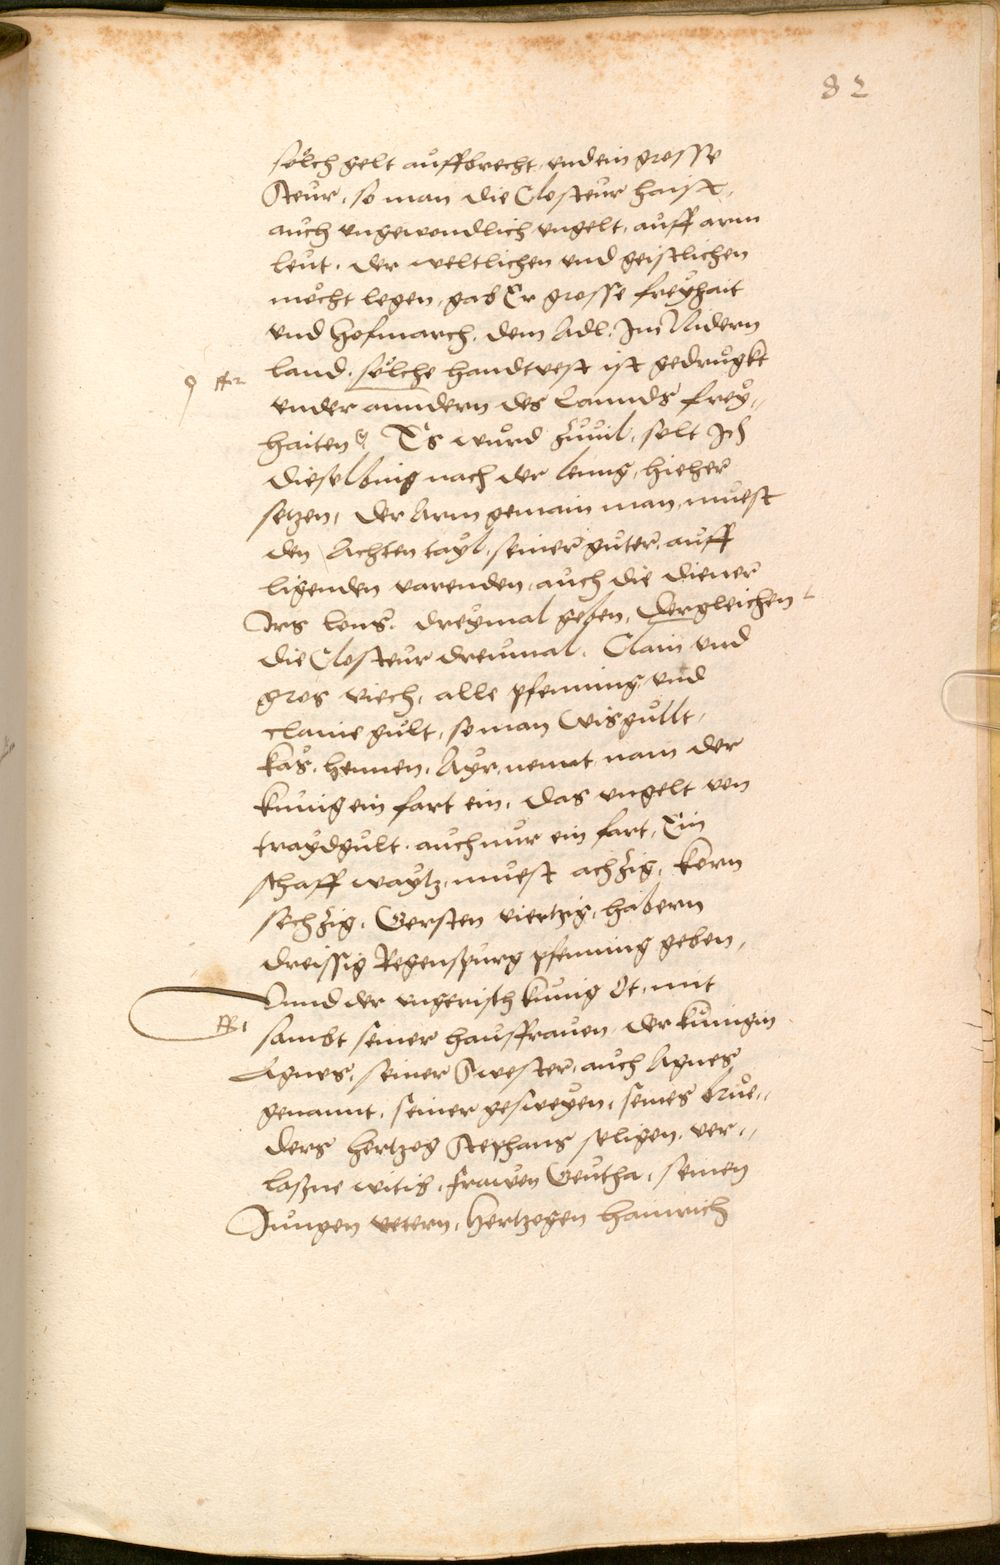 82
sölch gelt auffbrecht, und ein grosse
Steur, so man die Closteur haist,
auch ungewondlich ungelt, auff arm
leut, der weltlichen und geistlichen
möcht legen, gab Er grosse freyhait
und Hofmarch, dem Adl. Im Nidern
land. sölche handtvest ist gedrugkt
under anndern des Lannds frey„
haiten Es wurd zuvil, solt Ich
dieselbnig nach der leng, hieher
setzen, der Arm gemain man, muest
den Achten tayl, seiner guter, auff
ligenden varenden, auch die diener
Irs lons. dreymal geben, dergleichen
die Closteur dreumal. Clain und
gros viech, alle pfenning und
claine gult, so man Wisgullt,
käs, hennen, Ayr, nennt, nam der
kunig ein fart ein, das ungelt von
traydgult, auch nur ein fart, Ein
schaff waytz, muest achzig, korn
sechzig, Gersten viertzig, habern
dreissig Regenspurg pfenning geben,
Unnd der ungerisch kunig Ot, mit
sambt seiner hausfrauen, der kunigin
Agnes, seiner Swester, auch Agnes
genannt, seiner gesweyen, seines brue„
ders hertzog Stephans seligen, ver„
laßne witib, frawen Geutha, seinen
Jungen vetern, Hertzogen Hainrich